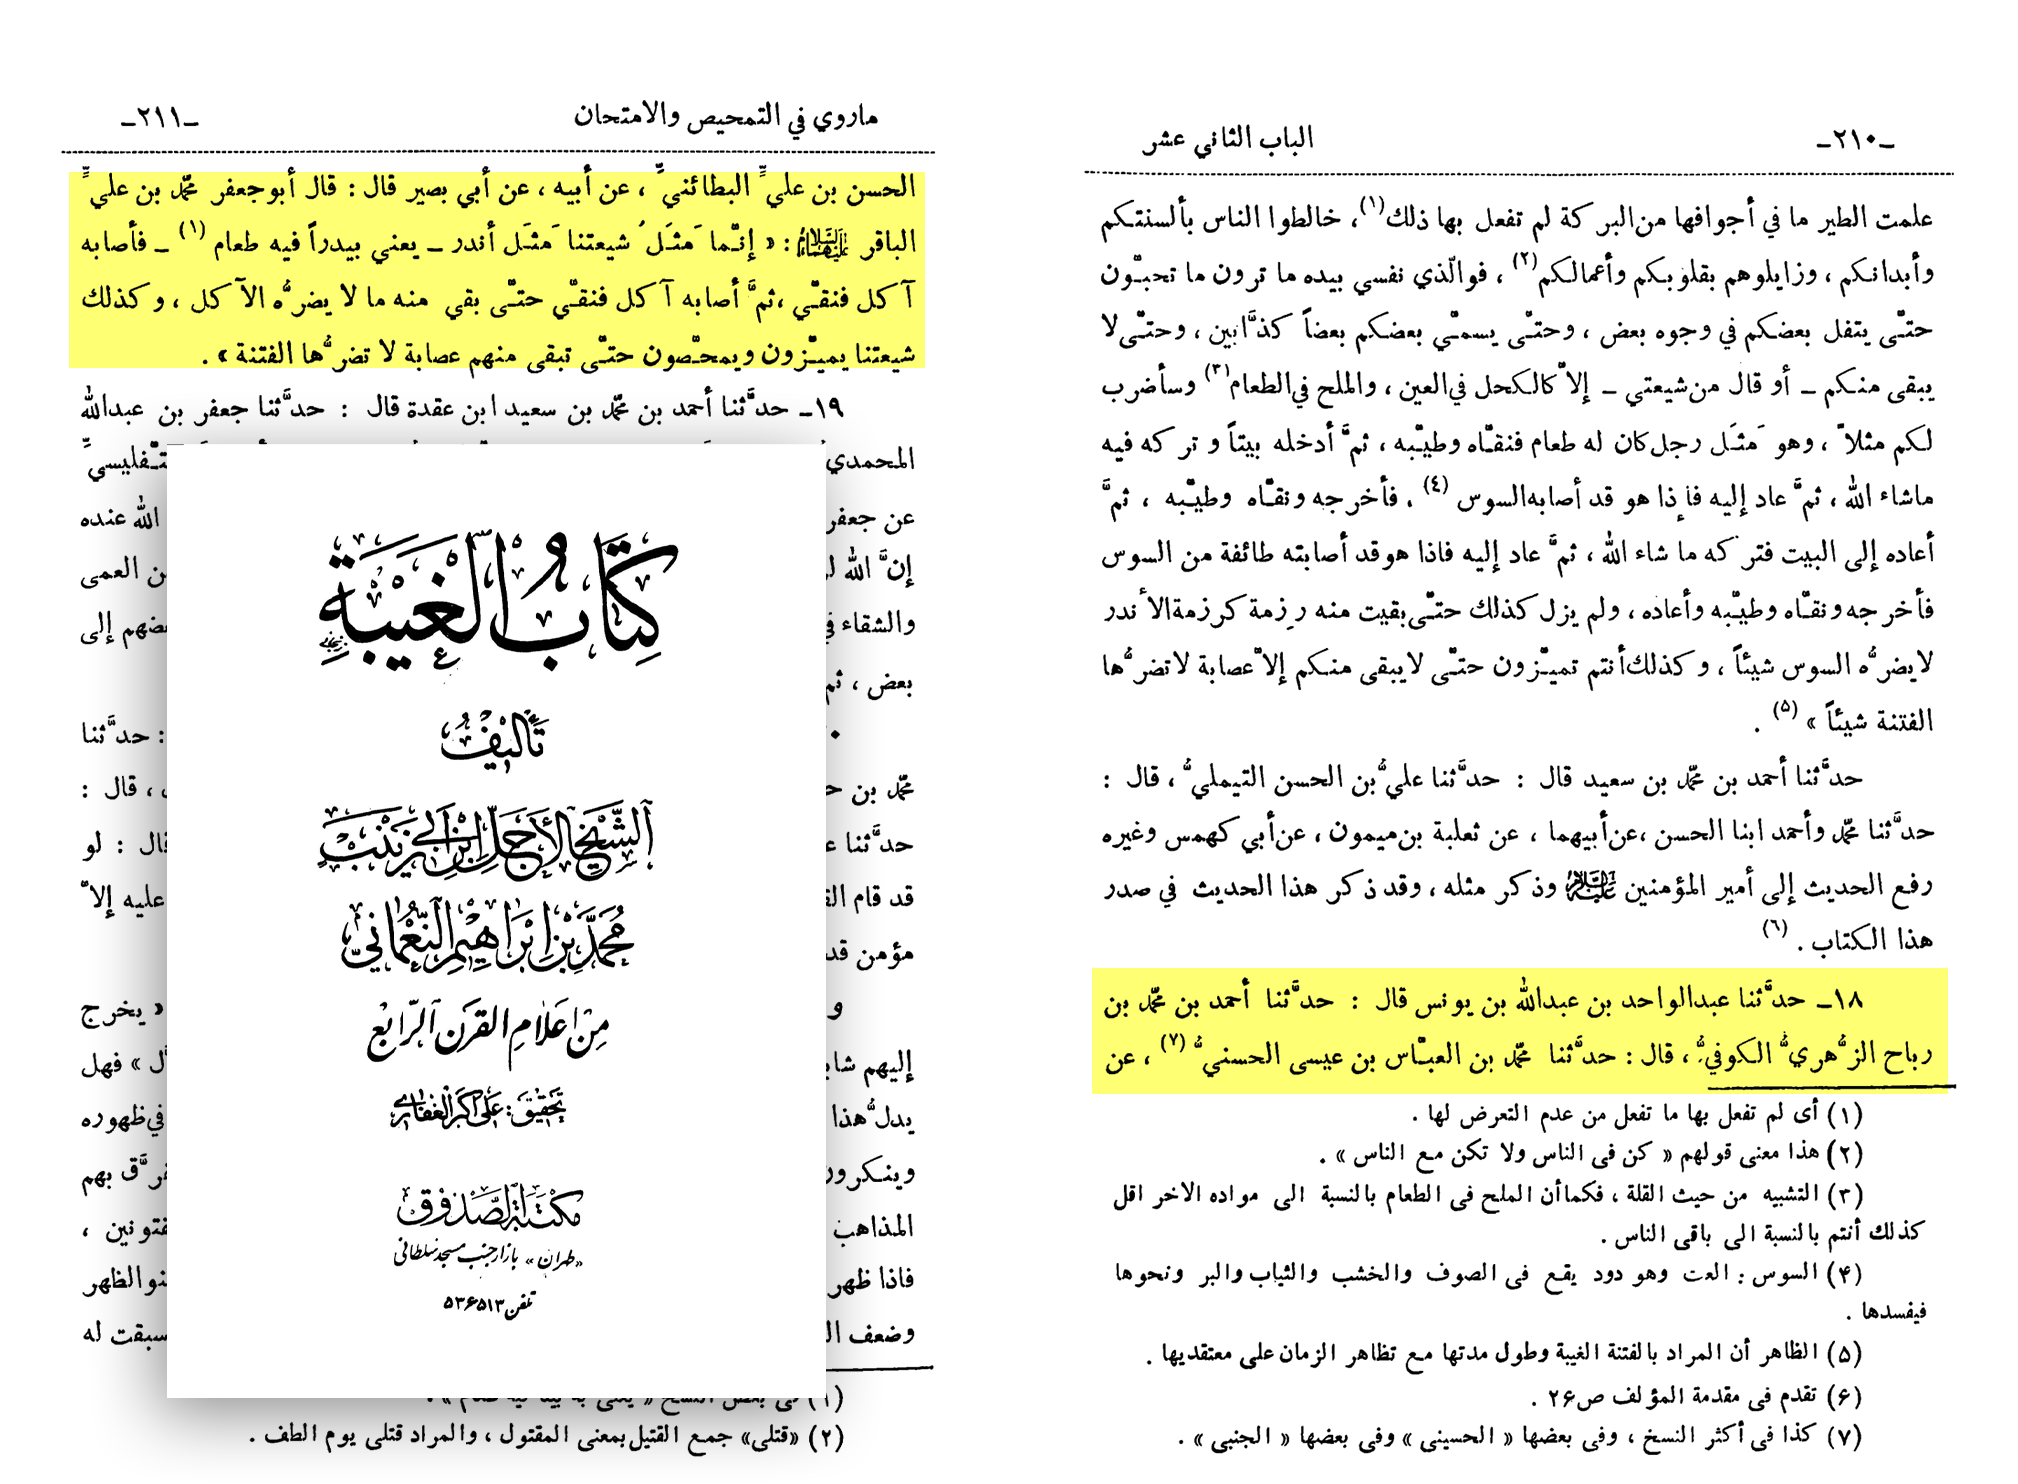 -٢١٠-
الباب الثاني عشر
علمت الطير ما في أجوافها من البركة لم تفعل بها ذلك (١)، خالطوا الناس بألسنتكم
وأبدانكم ، وزايلوهم بقلوبكم وأعمالكم (٢) ، فوالّذي نفسي بيده ما ترون ما تحبّون
حتّى يتفل بعضكم في وجوه بعض ، وحتّى يسمّي بعضكم بعضاً كذَّابين ، وحتّى لا
يبقى منكم ـ أو قال من شيعتي ـ إلاّ كالكحل في العين ، والملح في الطعام (٣) وسأضرب
لكم مثلاً ، وهو مَثَل رجل كان له طعام فنقّاه وطيّبه ، ثمَّ أدخله بيتاً وتركه فيه
ماشاء الله ، ثمَّ عاد إليه فإذا هو قد أصابه السوس (٤) . فأخرجه ونقّاه وطيّبه ، ثمَّ
أعاده إلى البيت فتركه ما شاء الله ، ثمَّ عاد إليه فاذا هو قد أصابته طائفة من السوس
فأخرجه ونقّاه وطيّبه وأعاده ، ولم يزل كذلك حتّى بقيت منه رزمة كرزمة الأندر
لا يضرُّه السوس شيئاً ، وكذلك أنتم تميّزون حتّى لا يبقى منكم إلاّ عصابة لا تضرُّها
الفتنة شيئاً » (۵) .
حدَّثنا أحمد بن محمّد بن سعيد قال : حدَّثنا عليُّ بن الحسن التيمليُّ ، قال :
حدَّثنا محمّد وأحمد ابنا الحسن ، عن أبيهما ، عن ثعلبة بن ميمون ، عن أبي كهمس وغيره
رفع الحديث إلى أمير المؤمنين عليه السلام وذكر مثله ، وقد ذكر هذا الحديث في صدر
هذا الكتاب . (٦)
١٨ـ حدَّثنا عبدالواحد بن عبدالله بن يونس قال : حدَّثنا أحمد بن محمّد بن
رباح الزُّهريُّ الكوفيُّ ، قال : حدَّثنا محمّد بن العبّاس بن عيسى الحسنيُّ (٧) ، عن
(١) أى لم تفعل بها ما تفعل من عدم التعرض لها .
(٢) هذا معنى قولهم « كن فى الناس ولا تكن مع الناس » .
(٣) التشبيه من حيث القلة ، فكما أن الملح فى الطعام بالنسبة الى مواده الاخر اقل
كذلك أنتم بالنسبة الى باقى الناس .
(۴) السوس : العث وهو دود يقع فى الصوف والخشب والثياب والبر ونحوها
فيفسدها .
(۵) الظاهر أن المراد بالفتنة الغيبة وطول مدتها مع تظاهر الزمان على معتقديها .
(۶) تقدم فى مقدمة المؤلف ص۲۶ .
(٧) كذا فى أكثر النسخ ، وفى بعضها « الحسينى » وفى بعضها « الجنبى » .
ماروي في التمحيص والامتحان
-٢١١-
الحسن بن عليٍّ البطائنيِّ ، عن أبيه ، عن أبي بصير قال : قال أبو جعفر محمّد بن عليٍّ
الباقر عليهما السلام : « إنّما مَثَلُ شيعتنا مَثَل أندر ـ يعني بيدراً فيه طعام (١) ـ فأصابه
آكل فنقّي ، ثمَّ أصابه آكل فنقّي حتّى بقي منه ما لا يضرُّه الآكل ، وكذلك
شيعتنا يميّزون ويمحّصون حتّى تبقى منهم عصابة لا تضرُّها الفتنة » .
١٩ـ حدَّثنا أحمد بن محمّد بن سعيد ابن عقدة قال : حدَّثنا جعفر بن عبدالله
المحمدي
عن جعفر الله عنده
إنَّ الله العمى
والشقاء إلى
بعض ،
: حدَّثنا
محمّد بن ، قال :
حدَّثنا : لو
قد قام عليه إلاّ
مؤمن
و « يخرج
إليهم » فهل
يدلُّ هذا في ظهوره
بهم
المذاهب ،
فاذا ظهر الظهر
وضعف سبقت له
(٢) «قتلى» جمع القتيل بمعنى المقتول ، والمراد قتلى يوم الطف .
كتاب الغيبة
تأليف
الشيخ الأجل ابن أبي زينب
محمد بن ابراهيم النعماني
من اعلام القرن الرابع
تحقيق : على اكبر الغفارى
مكتبة الصدوق
«طهران» بازار جنب مسجد سلطانى
تلفن ۵۳۶۵۱۳